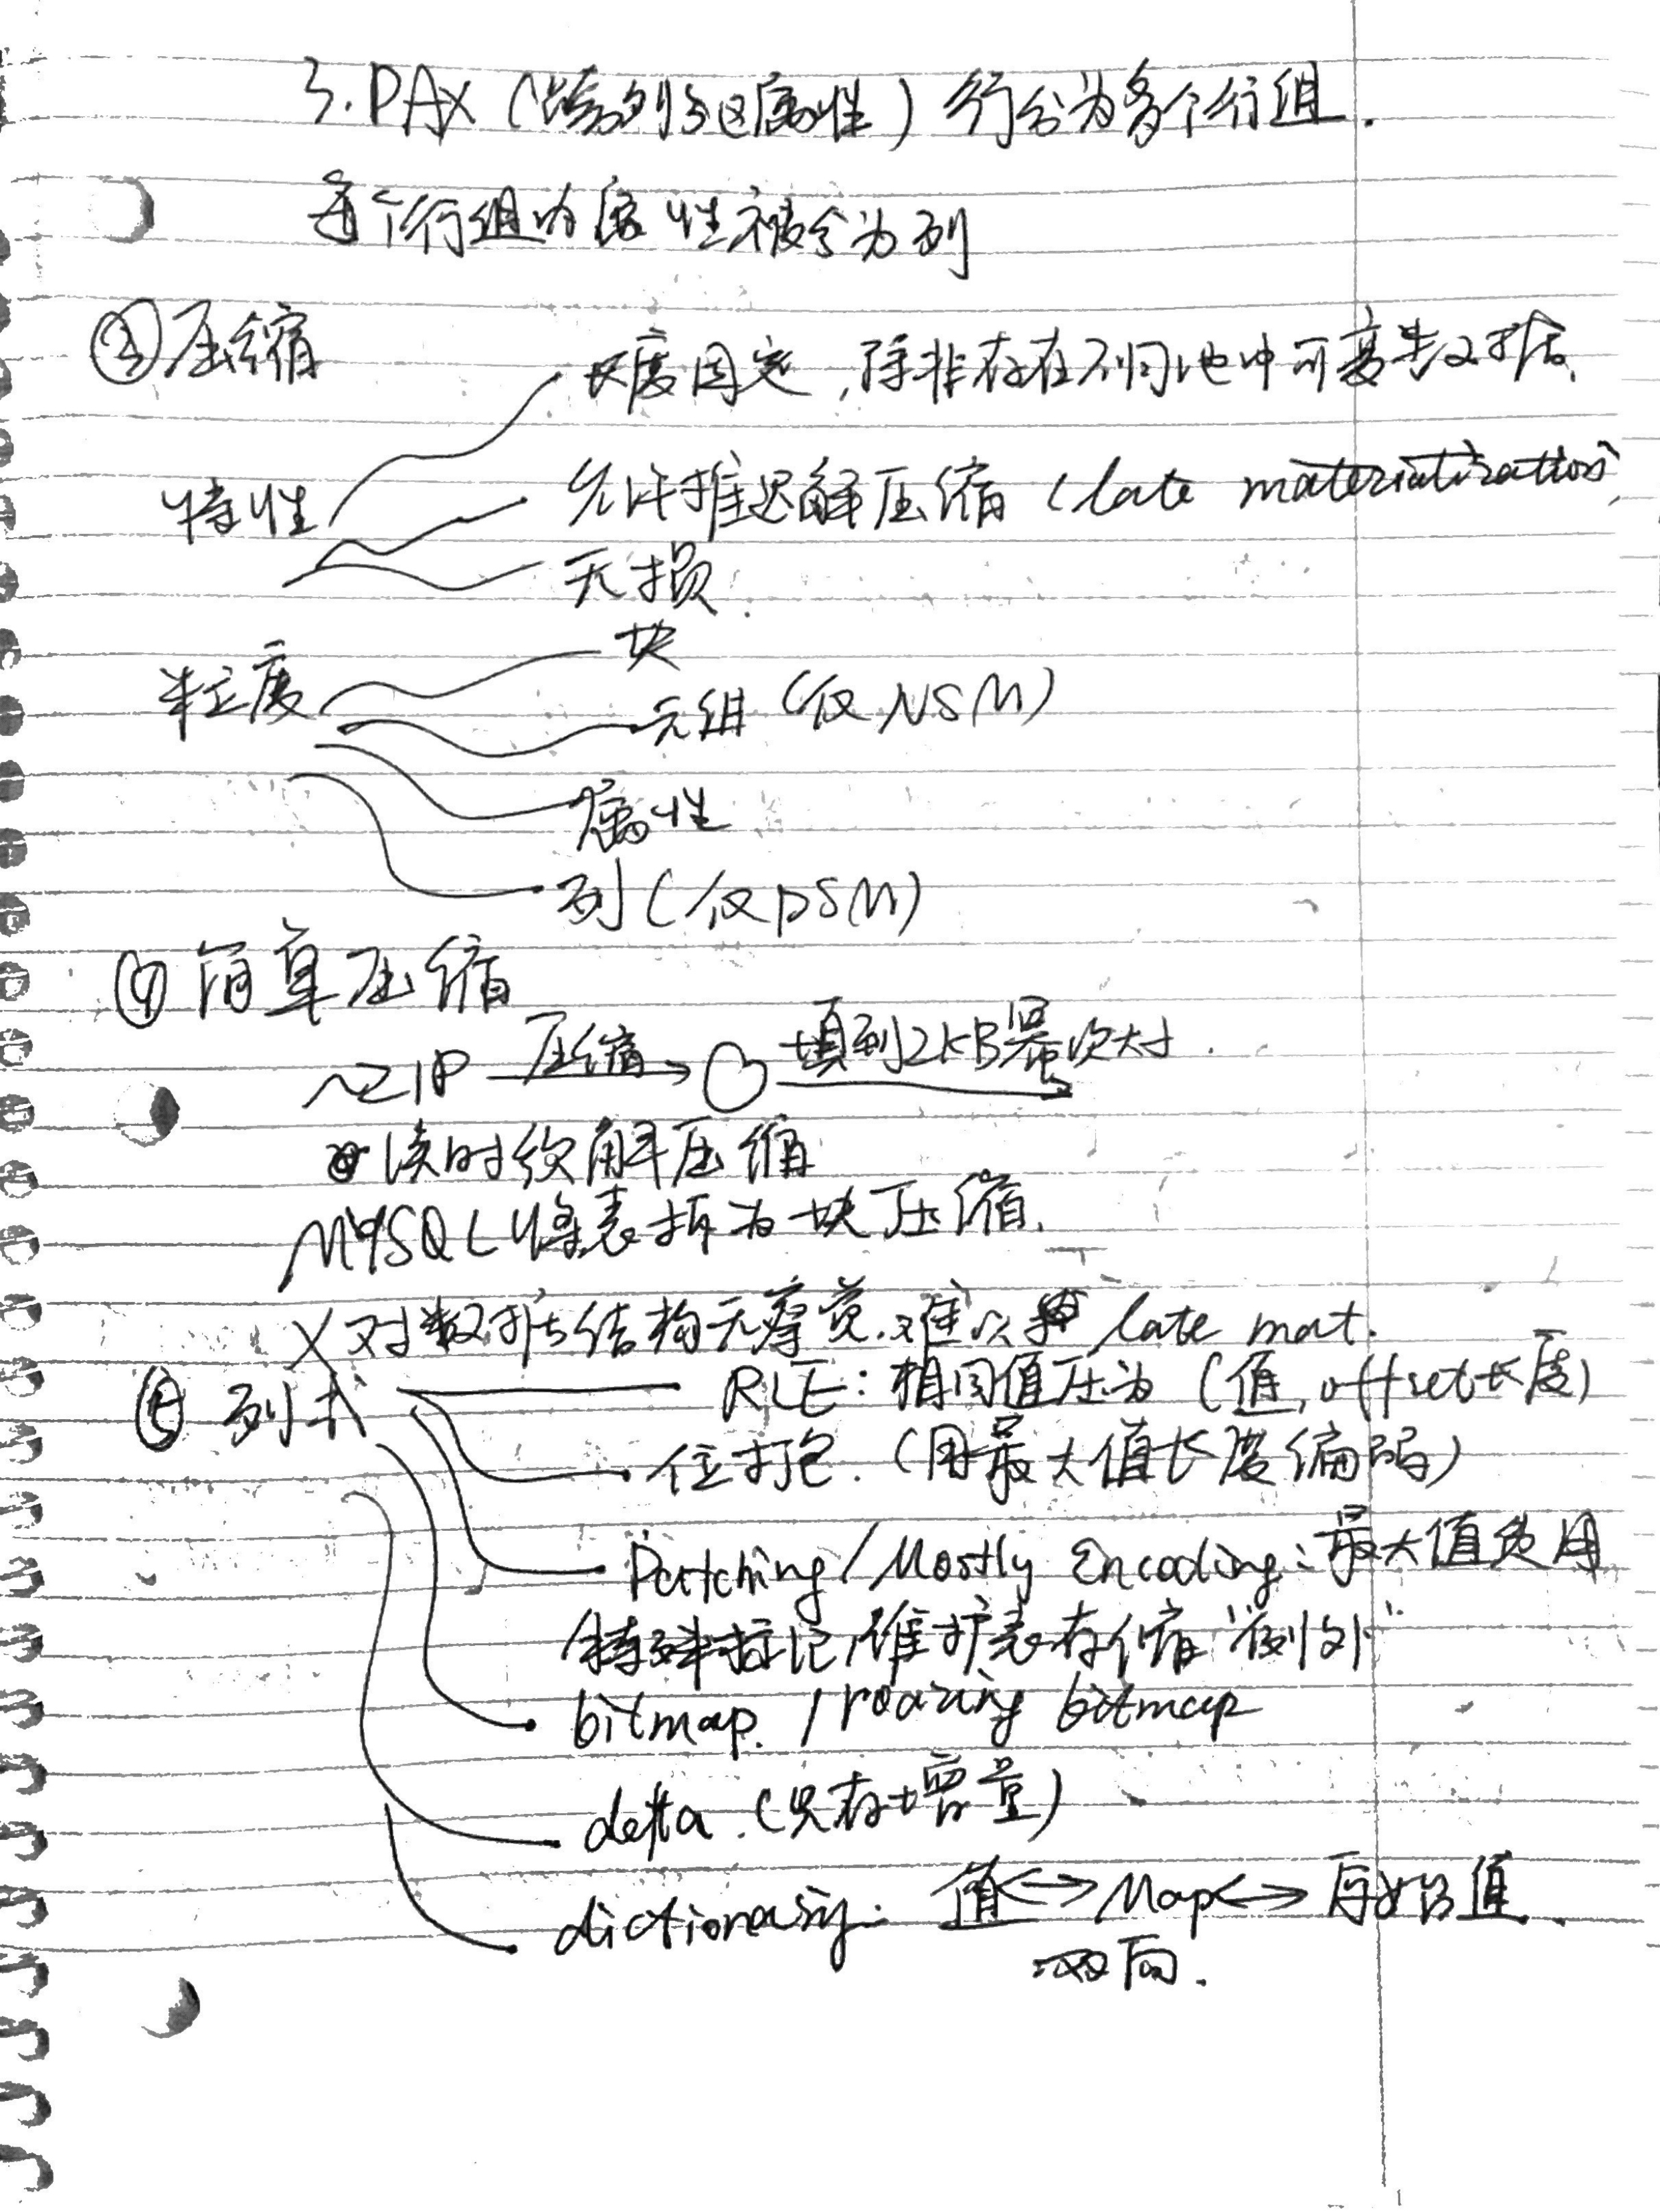 3. PAX (跨列分区属性) 行分为多个行组.
每个行组内属性被分为列
③压缩
特性
长度固定, 除非存在不同池中可变长数据.
允许推迟解压缩 (late materialization)
无损.
粒度
块
元组 (仅NSM)
属性
列 (仅DSM)
④ 简单压缩
~ZIP 压缩→ 填到2KB幂次大小.
读时须解压缩
MySQL将表拆为块压缩.
X 对数据结构无察觉. 难以 late mat.
⑤ 列式
RLE: 相同值压为 (值, offset, 长度)
位打包. (用最大值长度编码)
Patching/Mostly Encoding: 最大值使用
特殊标记, 维护表存储"例外"
bitmap. / roaring bitmap
delta. (只存增量)
dictionary: 值<->Map<->原始值.
双向.